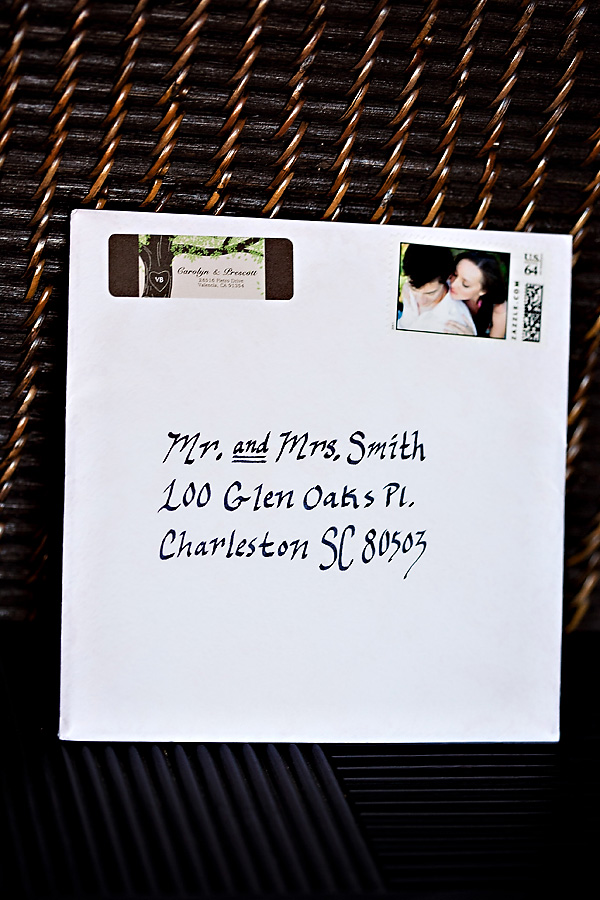 VB
Carolyn & Prescott
Valencia, CA 91354
U.S.
64
ZAZZLE.COM
Mr. and Mrs. Smith
100 Glen Oaks Pl.
Charleston SC 80503